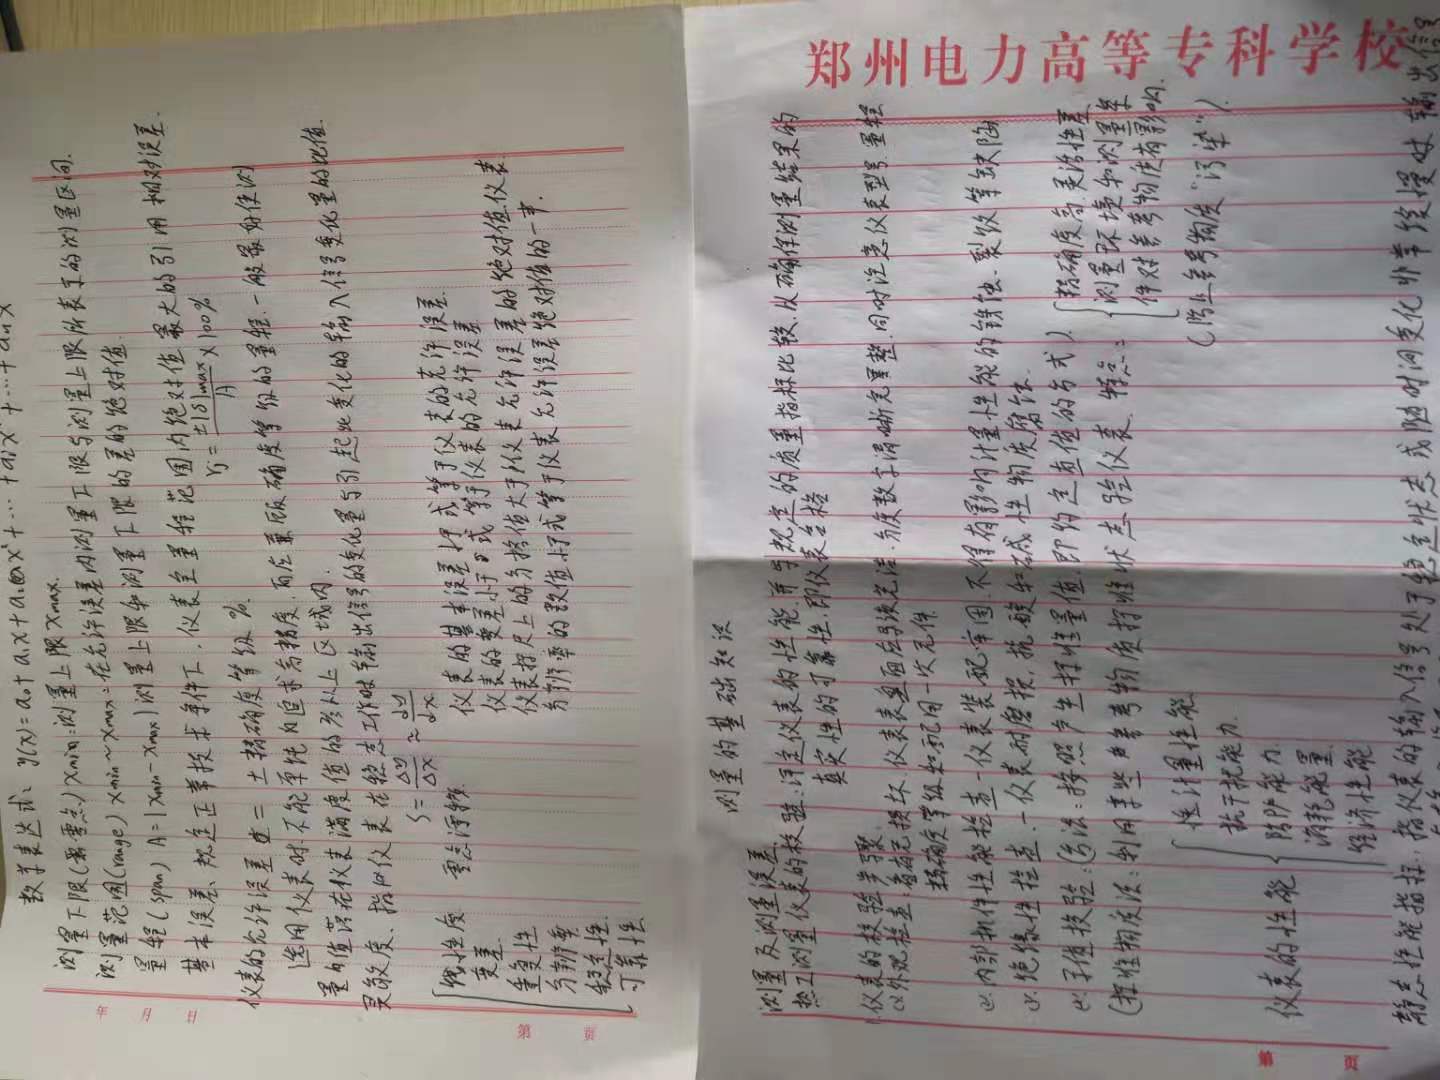 郑州电力高等专科学校
测量的基础知识
测量及测量误差
热工测量仪表的校验：评定仪表的性能,并与规定的质量指标比较,从确保测量结果的
真实性的可靠性,即仪表合格
仪表的校验步骤
外观检查：有无损坏、仪表表面应导读完洁、分度数字清晰完整、同时注意仪表型号、量程
精确度等级和配用一次元件
内部机件性能检查一仪表装配牢固、不得有影响计量性能的锈蚀、裂纹等缺陷
绝缘性检查.一仪表耐磨损、抗酸和碱性物质腐蚀.
示值校验：(方法：按照产生标准量值,即约定真值的方式)
(标准物质法：利用某些参考物质标准状态验仪表. 特点：
精确度高、灵活性差
测量环境和测量条
件对参考物质有影响
(防止参考物质“污染”)
仪表的性能
计量性能
抗干扰能力
防护能力
消耗能量
经济性能
静态性能指标：指仪表的输入信号处于稳定状态或随时间变化非常缓慢时输出信号
第 页
数学表达式： y(x)=a₀+a₁x+a₂x²+…+aᵢxⁱ+…+aₙx
测量下限(零点)xmin:测量上限xmax.
测量范围(range) xmin~xmax=在允许误差内测量下限与测量上限所表示的测量区间.
量程(span) A=|xmin-xmax|测量上限和测量下限的差的绝对值.
基本误差、规定正常技术条件下,仪表全量程范围内绝对值最大的引用相对误差.
γj=±|δ|max/A×100%
仪表的允许误差 = ±精确度等级%.
选用仪表时.不能单纯的追求高精度.而应兼顾精确度等级的量程.一般最好使测
量的值落在仪表满度值的2/3以上区域内.
灵敏度、指以仪表在稳态工作时输出信号的变化量与引起此变化的输入信号变化量的比值
S=Δy/Δx≈dy/dx
线性度
变差
重复性
分辨率
稳定性
可靠性
零点漂移
仪表的基本误差小于或等于仪表的允许误差.
仪表的变差小于或等于仪表的允许误差
仪表标尺上的分格值大于仪表允许误差的绝对值.仪表
分辨率的数值小于或等于仪表允许误差绝对值的一半.
年 月 日
第 页